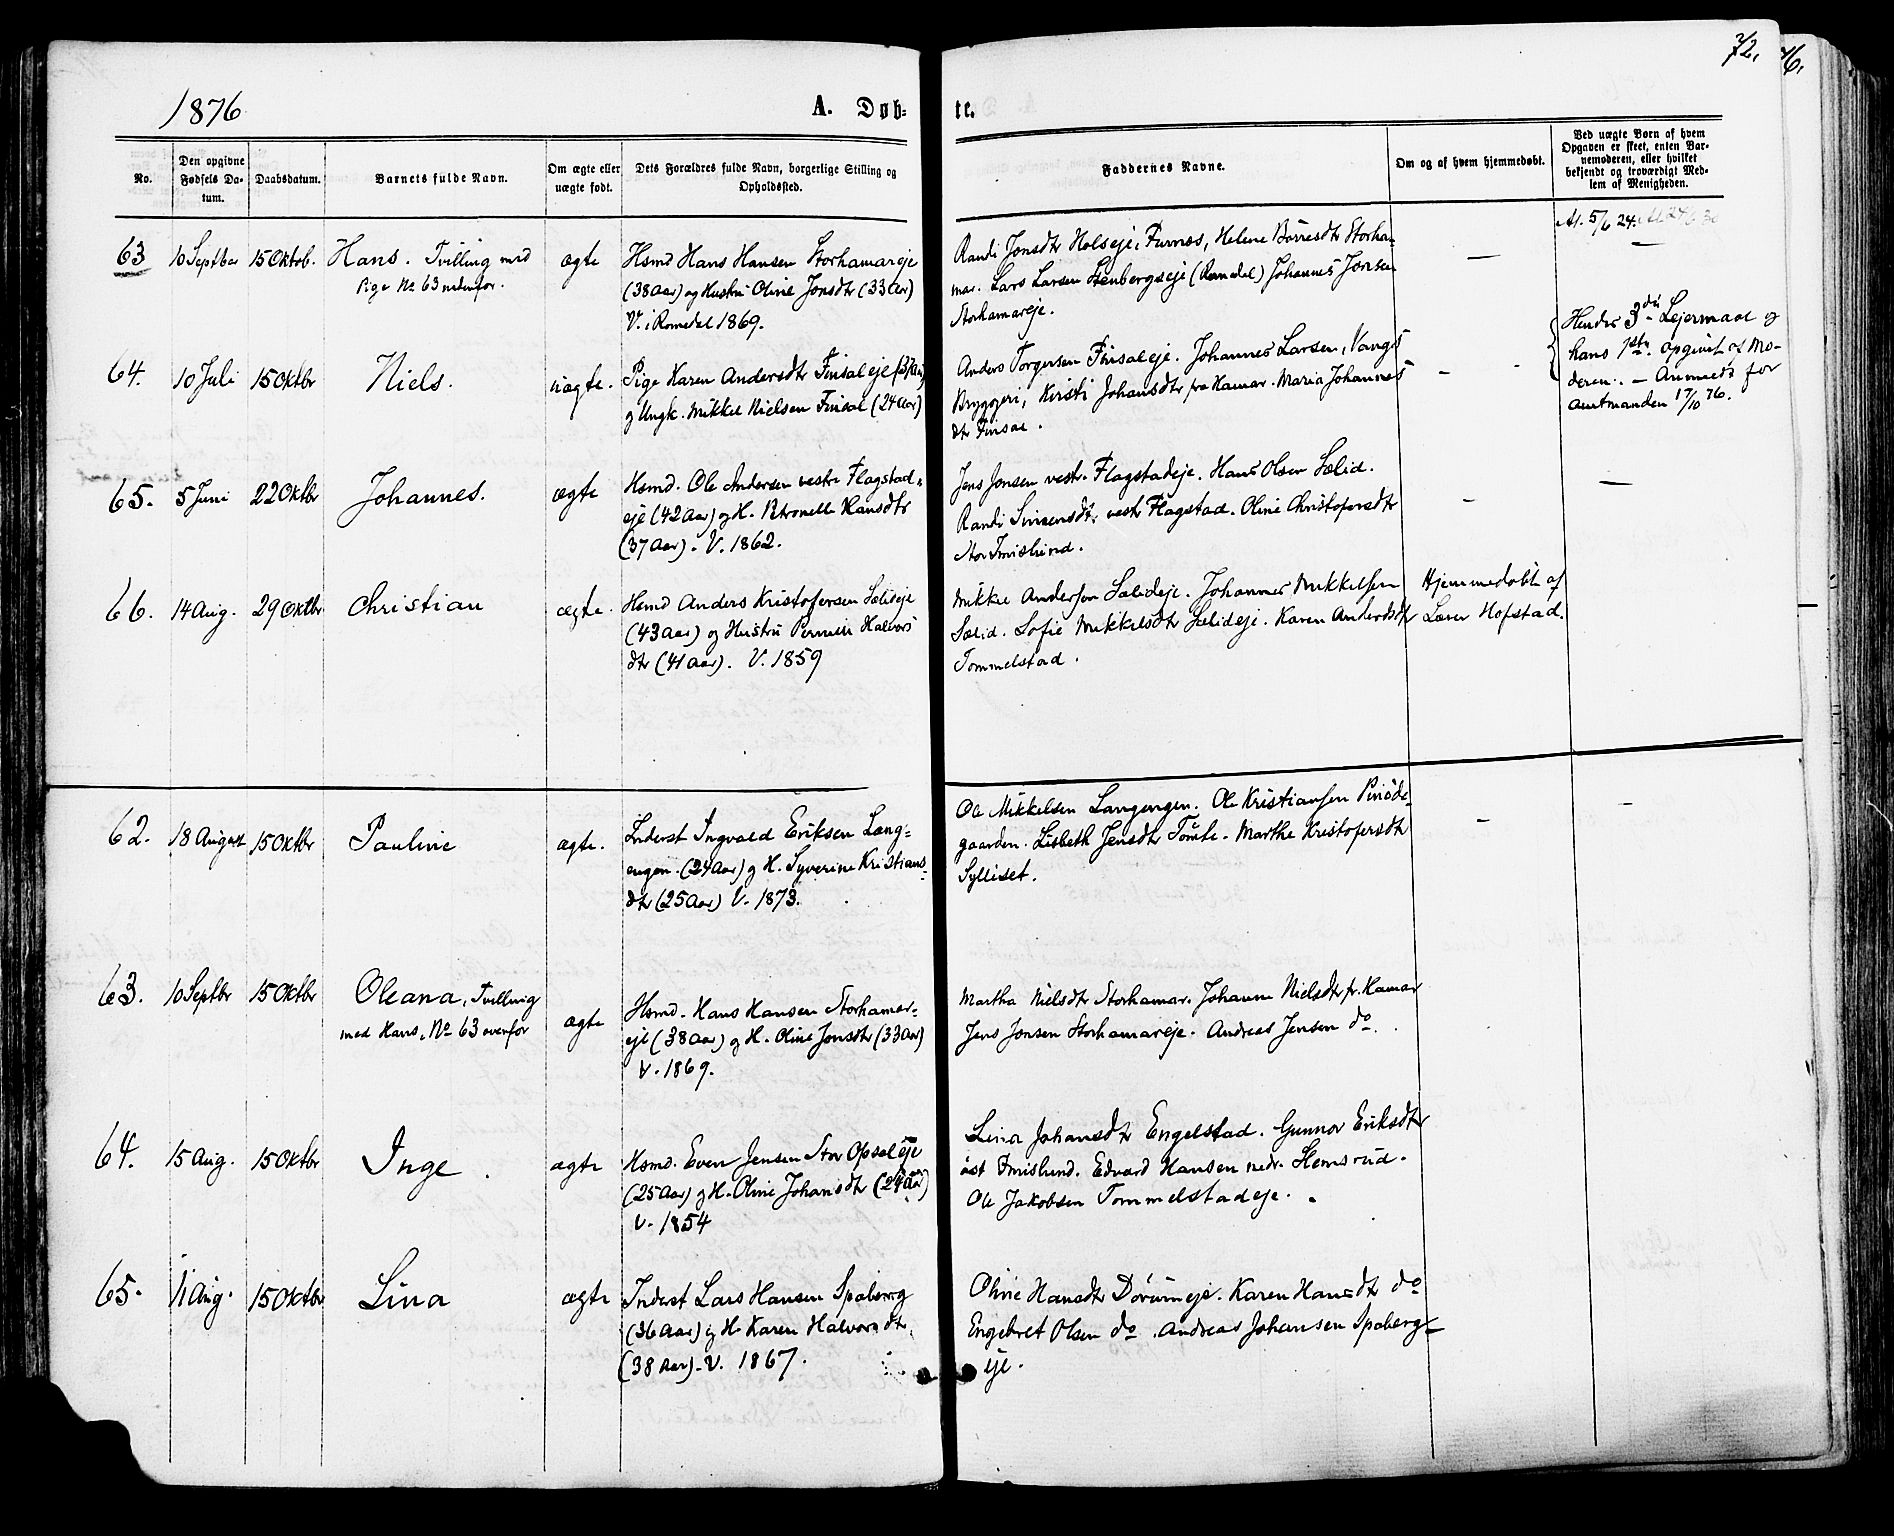 72.
76.
1876
A. Døb-
te.
No.
Den opgivne
Fødsels Da-
tum.
Daabsdatum.
Barnets fulde Navn.
Om ægte eller
uægte født.
Dets Forældres fulde Navn, borgerlige Stilling og
Opholdssted.
Faddernes Navne.
Om og af hvem hjemmedøbt.
Ved uægte Børn af hvem
Opgaven er skeet, enten Bar-
nemoderen, eller hvilket
bekjendt og troværdigt Med-
lem af Menigheden.
63
10 Septber
15 Oktob.
Hans. Tvilling med
Pige No 63 nedenfor.
ægte
Hsmd Hans Hansen Storhamareje
(38 Aar) og Hustru Oline Jonsdtr (33 Aar)
V. i Romedal 1869.
Randi Jonsdtr Holseje, Furnes, Helene Börresdtr Storha-
mar. Lars Larsen Stenbergseje (Romedal) Johannes Jonsen
Storhamareje.
—
At. 5/6 24.
—
64.
10 Juli
15 Oktbr
Niels.
uægte.
Pige Karen Andersdtr Finsaleje (37 Aar)
og Ungk. Mikkel Nielsen Finsal (24 Aar)
Anders Torgersen Finsaleje. Johannes Larsen, Vangs
Bryggeri, Kirsti Johansdtr fra Hamar. Maria Johannes
dtr Finsal.
—
Hendes 3die Lejermaal og
hans 1ste. opgivet af Mo-
deren. — Anmeldt for
Amtmanden 17/10 76.
65.
5 Juni
22 Oktbr
Johannes.
ægte
Hsmd. Ole Andersen vestre Flagstad-
eje (42 Aar) og H. Petronelle Hansdtr
(37 Aar). V. 1862.
Jens Jonsen vestr. Flagstadeje. Hans Olsen Sælid.
Randi Simensdtr. vestr Flagstad. Oline Christofersdtr
Stor Imislund.
—
—
66.
14 Aug.
29 Oktbr.
Christian
ægte.
Hsmd Anders Kristofersen Sælideje
(43 Aar) og Hustru Pernelle Halvors
dtr (41 Aar). V. 1859
Mikkel Andersen Sælideje. Johannes Mikkelsen
Sælid. Sofie Mikkelsdtr Sælideje. Karen Andersdtr
Tommelstad.
Hjemmedøbt af
Lærer Hofstad.
62.
18 August
15 Oktbr
Pauline
ægte.
Inderst Ingvald Eriksen Lang-
engen. (24 Aar) og H. Syverine Kristians-
dtr (25 Aar) V. 1873.
Ole Mikkelsen Langengen. Ole Kristiansen Prøde-
gaarden. Lisbeth Jensdtr Tomte. Marthe Kristofersdtr
Sylliset.
—
—
63.
10 Septbr
15 Oktbr
Oleana, Tvilling
med Hans, No 63 ovenfor
ægte
Hsmd. Hans Hansen Storhamar-
eje (38 Aar) og H. Oline Jonsdtr (33 Aar)
V. 1869.
Martha Nielsdtr Storhamar. Johanne Nielsdtr fr. Hamar
Jens Jonsen Storhamareje. Andreas Jensen do.
64.
15 Aug.
15 Oktbr
Inge.
ægte
Hsmd. Even Jensen Stor Opsaleje
(25 Aar) og H. Oline Johansdtr (24 Aar)
V. 1854
Lina Johansdtr Engelstad. Gunnor Eriksdtr
öst Imislund. Edvard Hansen nedr. Hemsrud.
Ole Jakobsen Tommelstadeje.
65.
11 Aug.
15 Oktbr
Lina
ægte
Inderst Lars Hansen Spaberg
(36 Aar) og H. Karen Halvorsdtr.
(38 Aar). V. 1867.
Oline Hansdtr Dörumeje. Karen Hansdtr do
Engebret Olsen do. Andreas Johansen Spaberg-
eje.